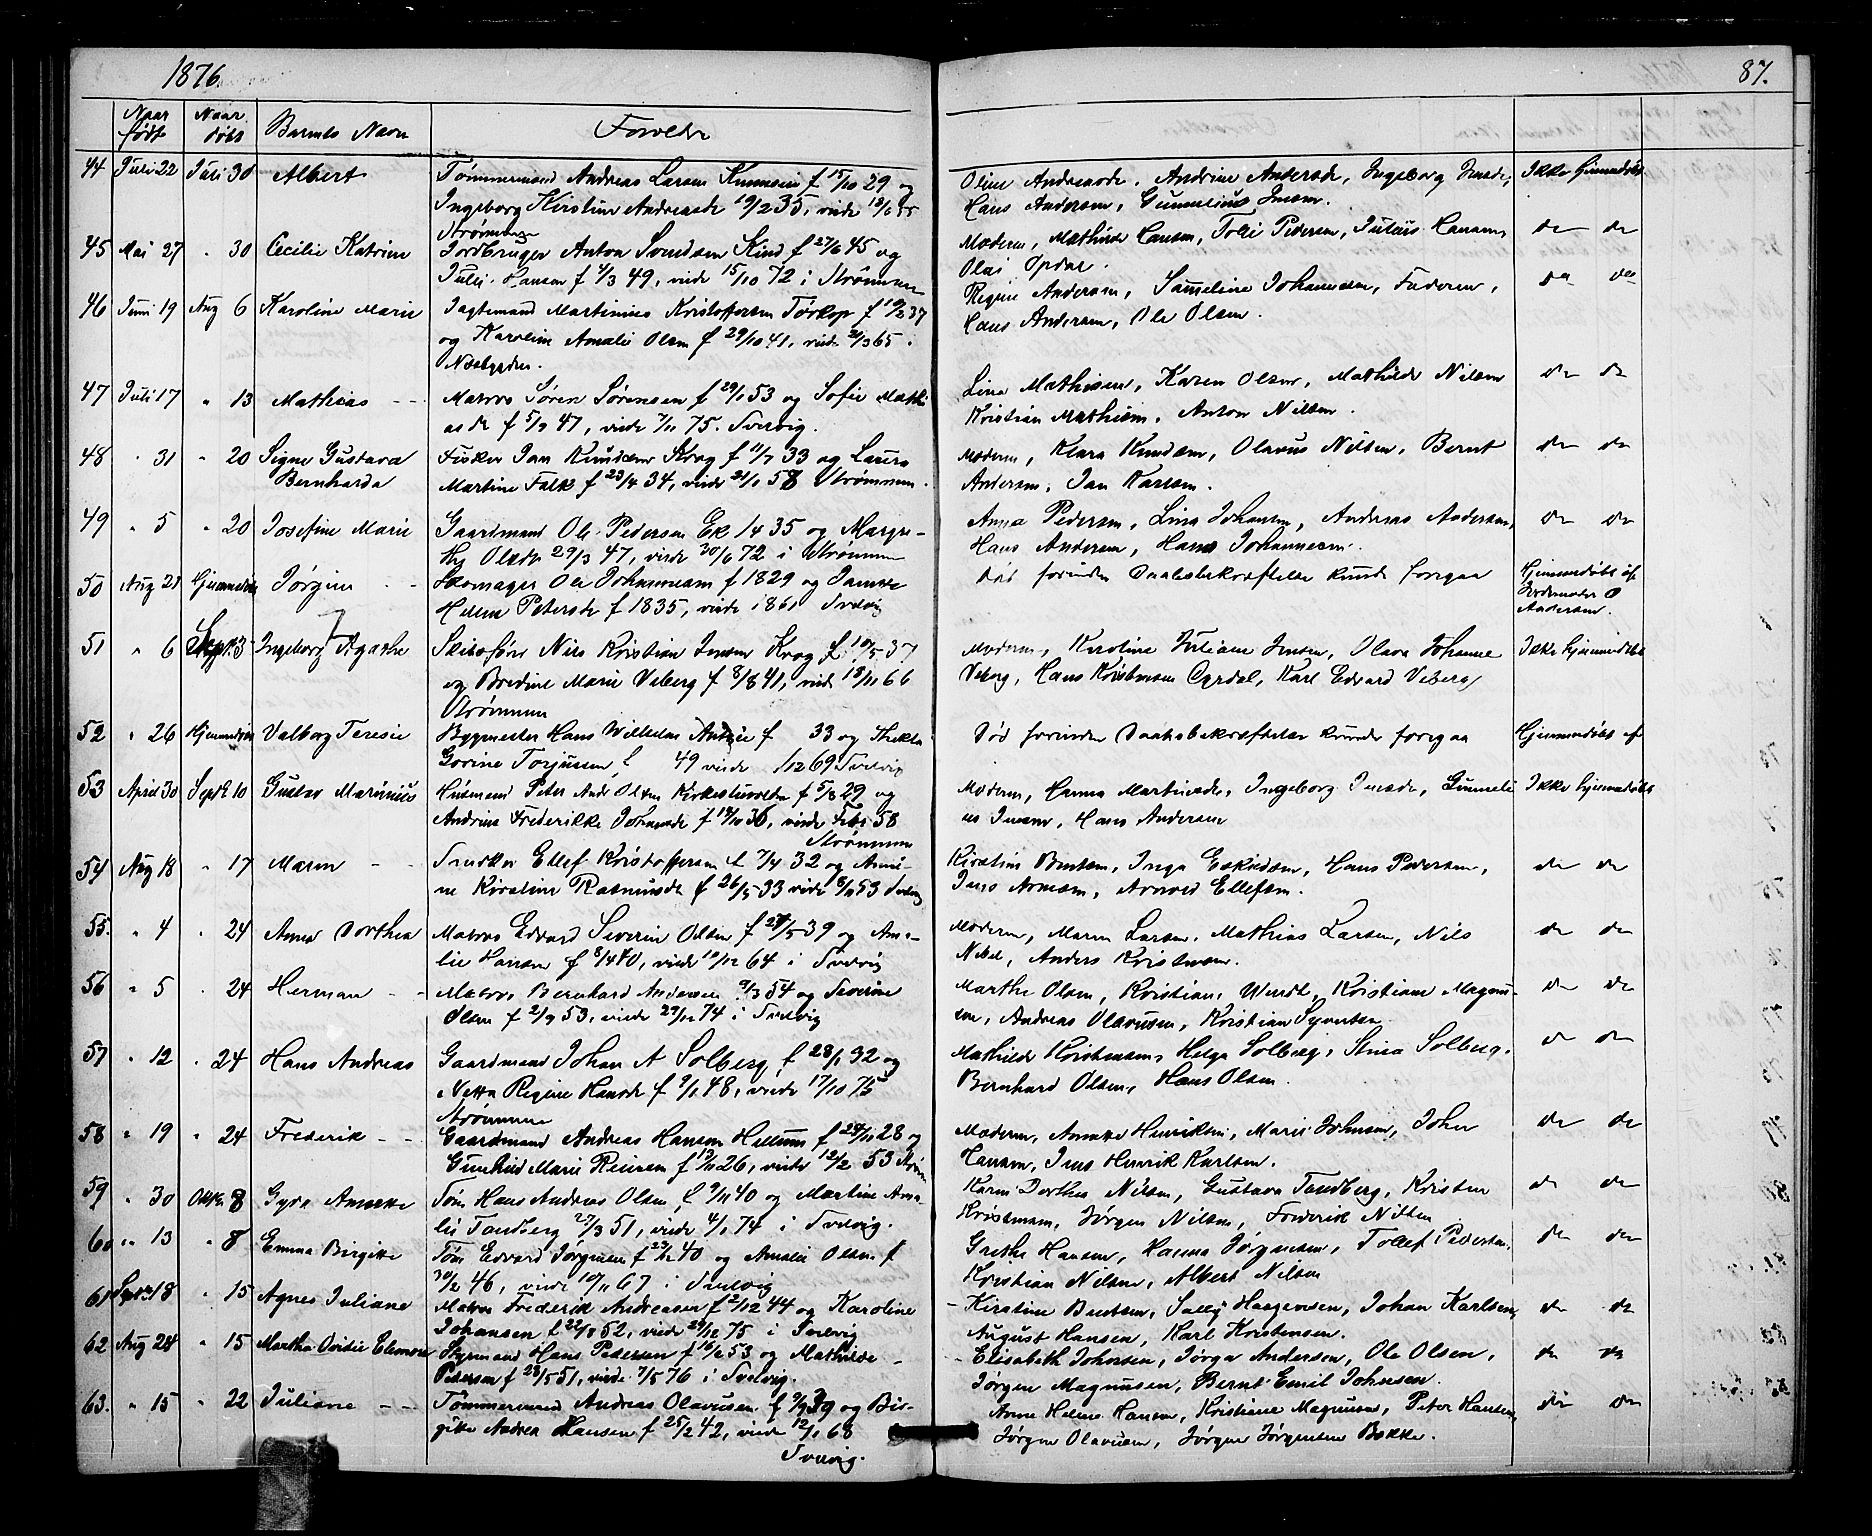 1876.
87.
Naar født Naar døbt Barnets Navn Forældre
44 Juli 22 Juli 30 Albert Tømmermand Andreas Larsen f 15/10 29 og
Ingeborg Kirstine Andreasdr 19/2 35, viede 55
Oline Andreasdr. Andrine Andersdr, Ingeborg Jensdr,
Hans Andersen, Gunnelius Jensen.
Ikke Hjemmedøbt
Strømmen
45 Mai 27 " 30 Cecilie Katrine Jordbruger Anton Svendsen Kind f 27/6 45 og
Juli Hansen f 4/3 49, viede 15/10 72 i Strømmen
Moderen, Mathilde Hansen, Tolle Pedersen, Julius Hansen,
Olai Opdal.
do do
46 Juni 19 Aug 6 Karoline Marie Jagtemand Martinius Kristoffersen Torkop f 10/2 37
og Karoline Amalie Olsen f 29/10 41, viede 31/3 65.
Næsbygden.
Regine Andersen, Sameline Johannesen, Faderen,
Hans Andersen, Ole Olsen.
do do
47 Juli 17 " 13 Mathias Matros Søren Sørensen f 29/1 53 og Sofie Mathi
asdr f 5/9 47, viede 7/11 75. Svelvig.
Lina Mathisen, Karen Olsen, Mathilde Nilsen
Kristian Mathisen, Anton Nilsen.
do do
48 " 31 " 20 Signe Gustava
Bernharda
Fisker Jan Knudsen Krog f 11/7 33 og Laura
Martine Falk f 23/4 34, viede 21/1 58 Strømmen.
Moderen, Klara Knudsen, Olavus Nilsen, Bernt
Andersen, Jan Karlsen.
do do
49 " 5 " 20 Josefine Marie Gaardmand Ole Pedersen Ek 14 35 og Margre-
the Olsdr 29/3 47, viede 30/6 72 i Strømmen
Anna Pedersen, Lina Johansen, Andreas Andersen,
Hans Andersen, Hans Johannesen.
do do
50 Aug 21 Hjemmedøbt Jørgine Skomager Ole Johannesen f 1829 og
Helene Petersdr f 1835, viede 1861 Svelvig
Død forinden Daabsbekræftelse kunde foregaa
Hjemmedøbt af
Jordemoder O
Andersen.
51 " 6 Sept 3 Ingeborg Agathe Skibsfører Nils Kristian Jensen Krog f 10/5 37
og Bredine Marie Veberg f 8/8 41, viede 18/11 66
Strømmen
Moderen, Karoline Juliane Jensen, Olava Johanne
Veberg, Hans Kristensen Ogrdal, Karl Edvard Veberg
Ikke Hjemmedøbt
52 " 26 Hjemmedøbt Valborg Teresie Bygmester Hans Wilhelm f 33 og Thekla
Gorine Torjussen f 49 viede /12 69 Svelvig
Død forinden Daabsbekræftelse kunde foregaa
Hjemmedøbt af
53 April 30 Septbr 10 Gustav Marinius Husmand Peter And Olsen Kirkestuvolden f 5/8 29 og
Andrine Frederikke Johnsdr f 36, viede Febr 58
Strømmen
Moderen, Hanna Martinsdr, Ingeborg Jensdr, Gunneli
us Jensen, Hans Andersen
Ikke Hjemmedøbt
54 Aug 18 " 17 Maren Snedker Ellef Kristoffersen f 7/4 32 og
ne Kirstine Rasmusdr f 26/5 33 viede 8/11 53 Svelvig
Kirstine Bentsen, Inga Eskildsen, Hans Pedersen,
Jens Arnesen, Arnold Ellefsen.
do do
55. " 4 " 24 Anna Dorthea Matros Edvard Severin Olsen f 27/5 39 og Ama-
lie Hansen f 8/4 40, viede 19/12 64 i Svelvig
Moderen, Maren Larsen, Mathias Larsen, Nils
Nibel, Anders Kristensen.
do do
56 " 5 " 24 Herman Matros Bernhard Andersen 9/3 54 og Severine
Olsen f 2/9 53, viede 27/12 74 i Svelvig
Marthe Olsen, Kristiane Wendt, Kristiane Magnus-
sen, Andreas Olavusen, Kristian Syversen
do do
57 " 12 " 24 Hans Andreas Gaardmand Johan A Solberg f 28/1 32 og
Netta Regine Hansdr f 9/1 48, viede 17/10 75
Strømmen
Mathilde Kristensen, Helga Solberg, Stina Solberg,
Bernhard Olsen, Hans Olsen.
do do
58 " 19 " 24 Frederik Gaardmand Andreas Hansen Hellum f 24/11 28 og
Gunhild Marie Reiersen f 13/11 26, viede 12/2 53 Strøm
Moderen, Annette Henriksen, Marie Johnsen, John
Hansen, Jens Henrik Karlsen.
do do
59 " 30 Oktbr 8 Gyda Annette Tøm Hans Andreas Olsen f 9/11 40 og Martine Ama-
lie Tandberg 27/3 51, viede 4/1 74 i Svelvig.
Karen Dorthea Nilsen, Gustava Tandberg, Kristen
Kristensen, Jørgen Nilsen, Frederik Nilsen
do do
60 " 13 " 8 Emma Birgitte Tøm Edvard Jørgensen f 23/12 40 og Amalie Olsen f
30/12 46, viede 10/11 67 i Svelvig
Grethe Hansen, Hanna Jørgensen, Tollef Pedersen,
Kristian Nilsen, Albert Nilsen
do do
61 Septbr 18 " 15 Agnes Juliane Matros Frederik Andreasen f 2/12 44 og Karoline
Johansen f 22/8 52, viede 29/12 75 i Svelvig
Kirstine Bentsen, Sally Haagensen, Johan Karlsen,
August Hansen, Karl Kristensen.
do do
62 Aug 24 " 15 Martha Ovidie Elenora Styrmand Hans Pedersen f 16/2 53 og Mathilde
Petersen f 28/5 51, viede 7/5 76 i Svelvig.
Elisabeth Johnsen, Jørga Andersen, Ole Olsen,
Jørgen Magnusen, Bernt Emil Johnsen.
do do
63. " 15 " 22 Juliane Tømmermand Andreas Olavusen f 9/9 39 og Bir-
gitte Andrea Hansen f 25/2 42, viede 12/1 68
Svelvig.
Anne Helene Hansen, Kristiane Magnusen, Peter Hansen,
Jørgen Olavusen, Jørgen Jørgensen Bakke.
do do